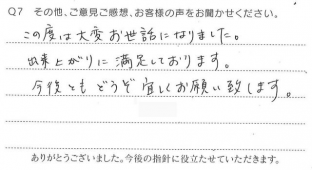 Q7 その他、ご意見ご感想、お客様の声をお聞かせください。
この度は大変お世話になりました。
出来上がりに満足しております。
今後ともどうぞ宜しくお願い致します。
ありがとうございました。今後の指針に役立たせていただきます。